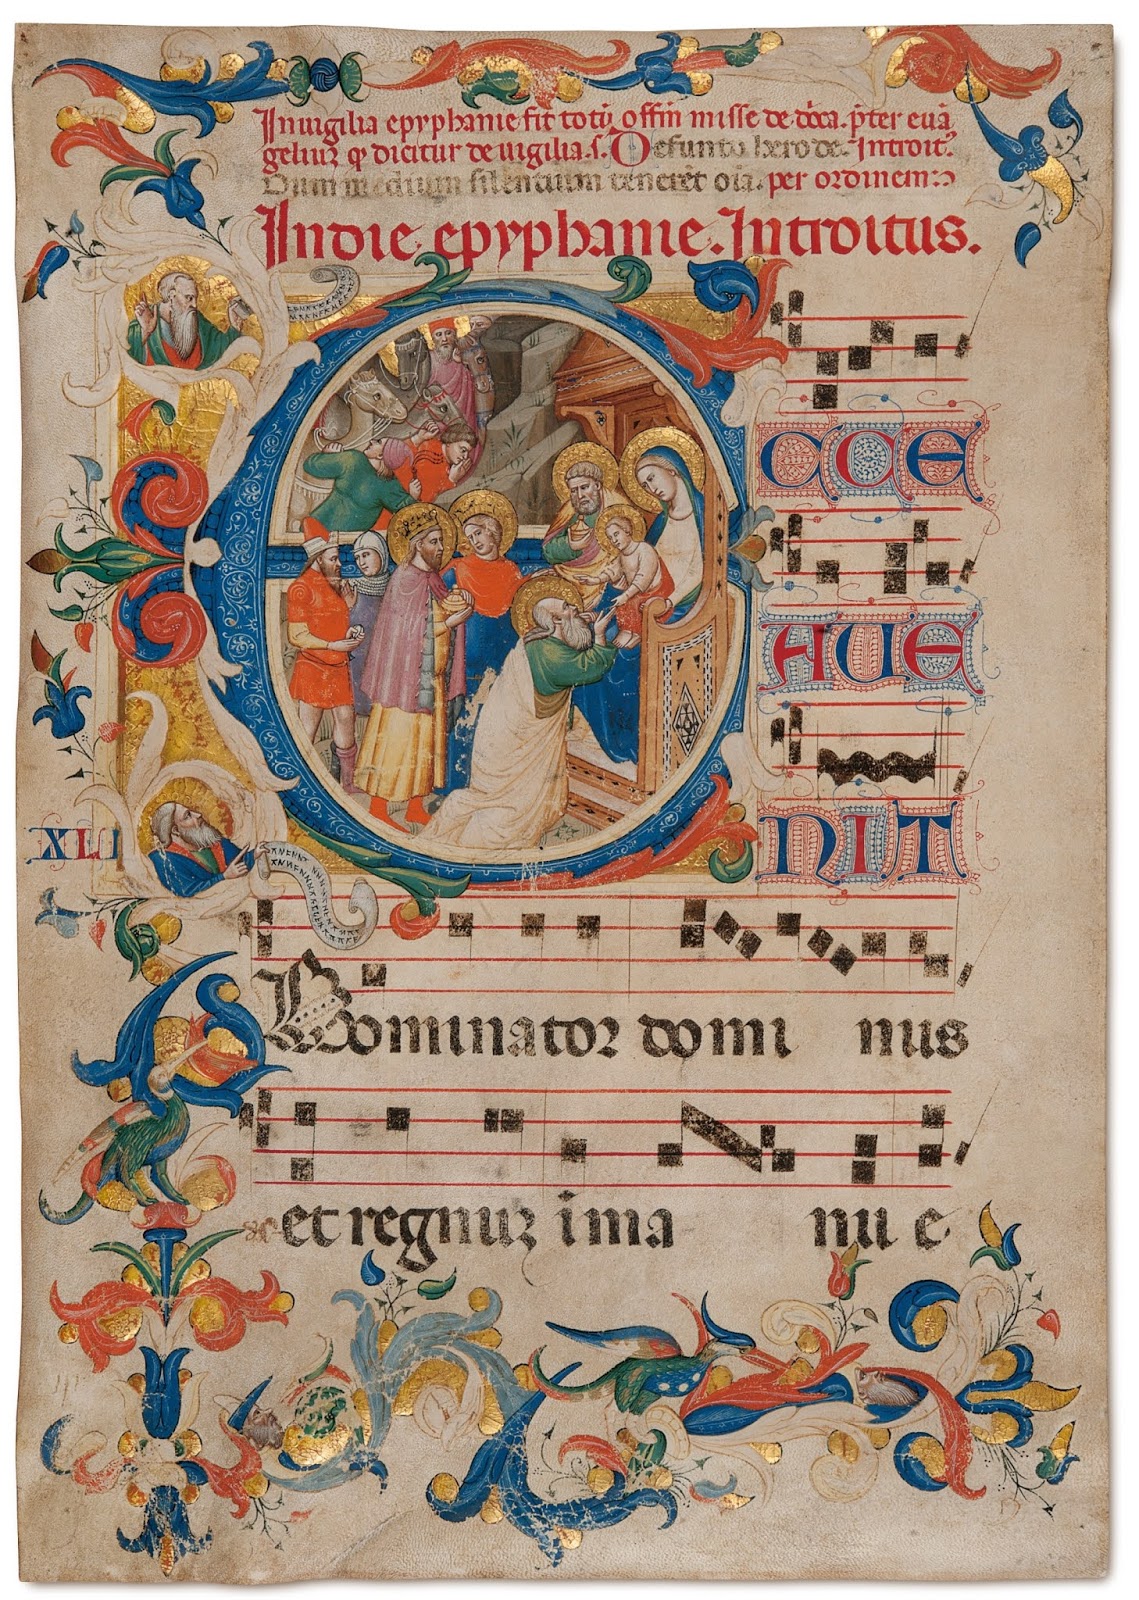 In uigilia epyphanie fit totū offm̄ misse de dn̄ica. p̄ter euā
gelium qd̄ dicitur de uigilia. s. Defuncto herode. Introit.
Dum medium silentium tenerēt oīa. per ordinem
In die epyphanie. Introitus.
ECCE
AUE
NIT
XLI
Dominator domi nus
et regnum i ma nu e